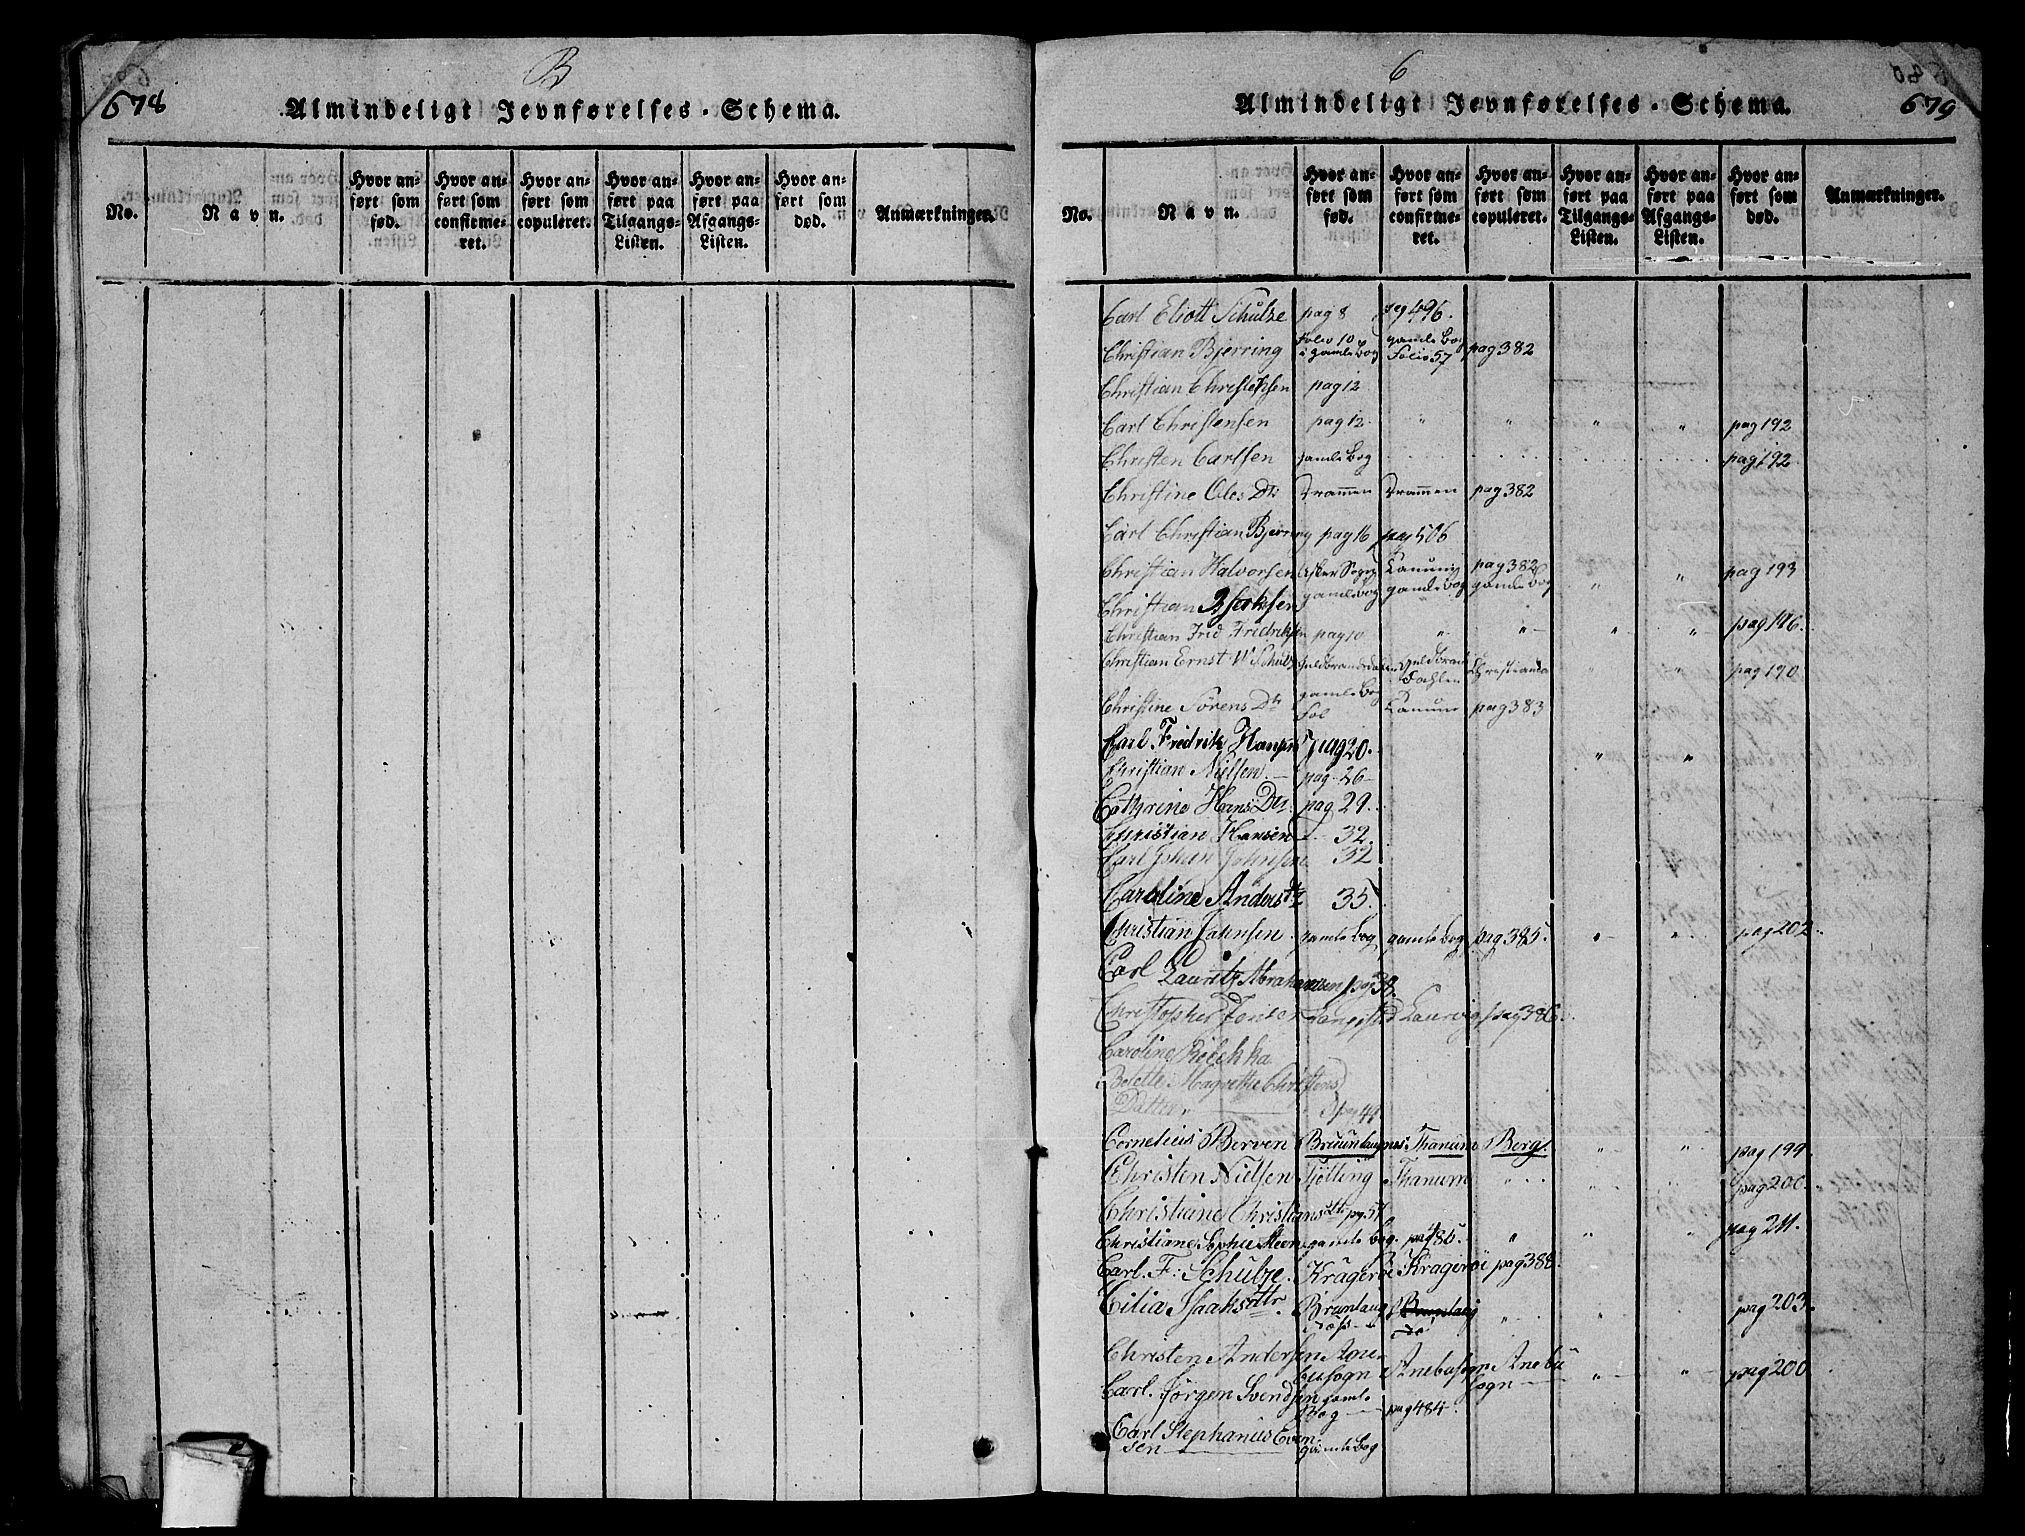 B
678
Almindeligt Jevnførelses-Schema.
No.
Navn.
Hvor an-
ført som
fød.
Hvor an-
ført som
confirme-
ret.
Hvor an-
ført som
copuleret.
Hvor an-
ført paa
Tilgangs-
Listen.
Hvor an-
ført paa
Afgangs-
Listen.
Hvor an-
ført som
død.
Anmærkninger.
679
Almindeligt Jevnførelses-Schema.
No.
Navn.
Hvor an-
ført som
fød.
Hvor an-
ført som
confirme-
ret.
Hvor an-
ført som
copuleret.
Hvor an-
ført paa
Tilgangs-
Listen.
Hvor an-
ført paa
Afgangs-
Listen.
Hvor an-
ført som
død.
Anmærkninger.
Carl Eliott Schulze pag 8 pag 496.
Christian Bjerring Folio 10 i gamle Bog gamle Bog Folio 57 pag 382
Christian pag 12
Carl Christensen pag 12 " " " " pag 192
Christen Carlsen gamle Bog pag 192
Christine Oles Dtr Drammen Drammen pag 382
Carl Christian Bjerring pag 16 pag 506
Christian Halvorsen gamle Bog gamle Bog pag 382 gamle Bog " " pag 193
Christian
Christian Frid Fridriksen pag 10 " " " " pag 186.
Christian Ernst W Schulz Guldbrandsdalen Christiania pag 190
Christine Sørens Dtr gamle Bog Fol pag 383
Carl Fredrik Hansen pag 20. " "
Christian Nielsen. pag. 26
Cathrine Hans Dtr. pag 29.
Christian Hansen 32.
Carl Johan Johnsen 32
Caroline Anders Dtr 35.
Christian Johnsen gamle Bog gamle Bog pag 385. " " pag 202.
Carl Lauritz Abrahamsen pag 38.
Christopher Jensen Laurvig pag 386.
Caroline
Bolette Magrethe Christens
Datter pag 49
Cornelius Berven Thanum Berg. " " pag 199
Christen Nielsen Tjølling Thanum " " pag 200.
Christiane Christians Dtr pag 57
Christiane Sophie Steen gamle Bog. pag 485. " " " pag 211.
Carl. F: Schulze. Kragerøe Kragerøe pag 388
Cilia Isaaksdtr Brunlaug næss Brunlaug do " " " pag 203.
Christen Andersen Ane-
busogn Anebusogn Anebu
Sogn " " pag 200
Carl. Jørgen Svendsen gamle
Bog pag 484.
Carl Stephanus Even
sen gamle Bog